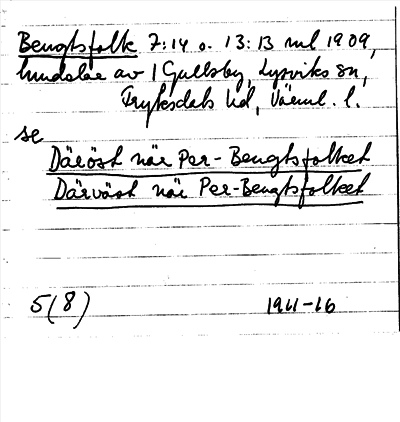 Bengtsfolk 7:14 o. 13:13 enl 1909,
hundelar av 1 Gullsby, Lysviks sn,
Fryksdals hd, Värml. l.
se
Däröst när Per-Bengtsfolket
Därväst när Per-Bengtsfolket
5(8) 1911-16